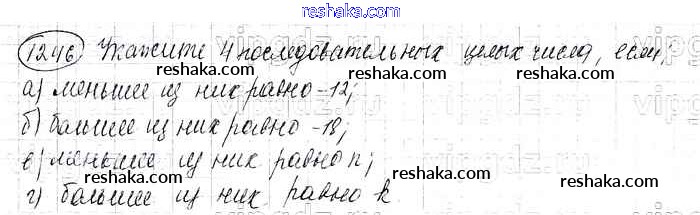 reshak.ru
1246 Укажите 4 последовательных целых числа, если,
reshaka.com reshaka.com
а) меньшее из них равно -12;
б) большее из них равно -18;
reshaka.com reshaka.com
в) меньшее из них равно n;
г) большее из них равно k.
reshaka.com reshaka.com